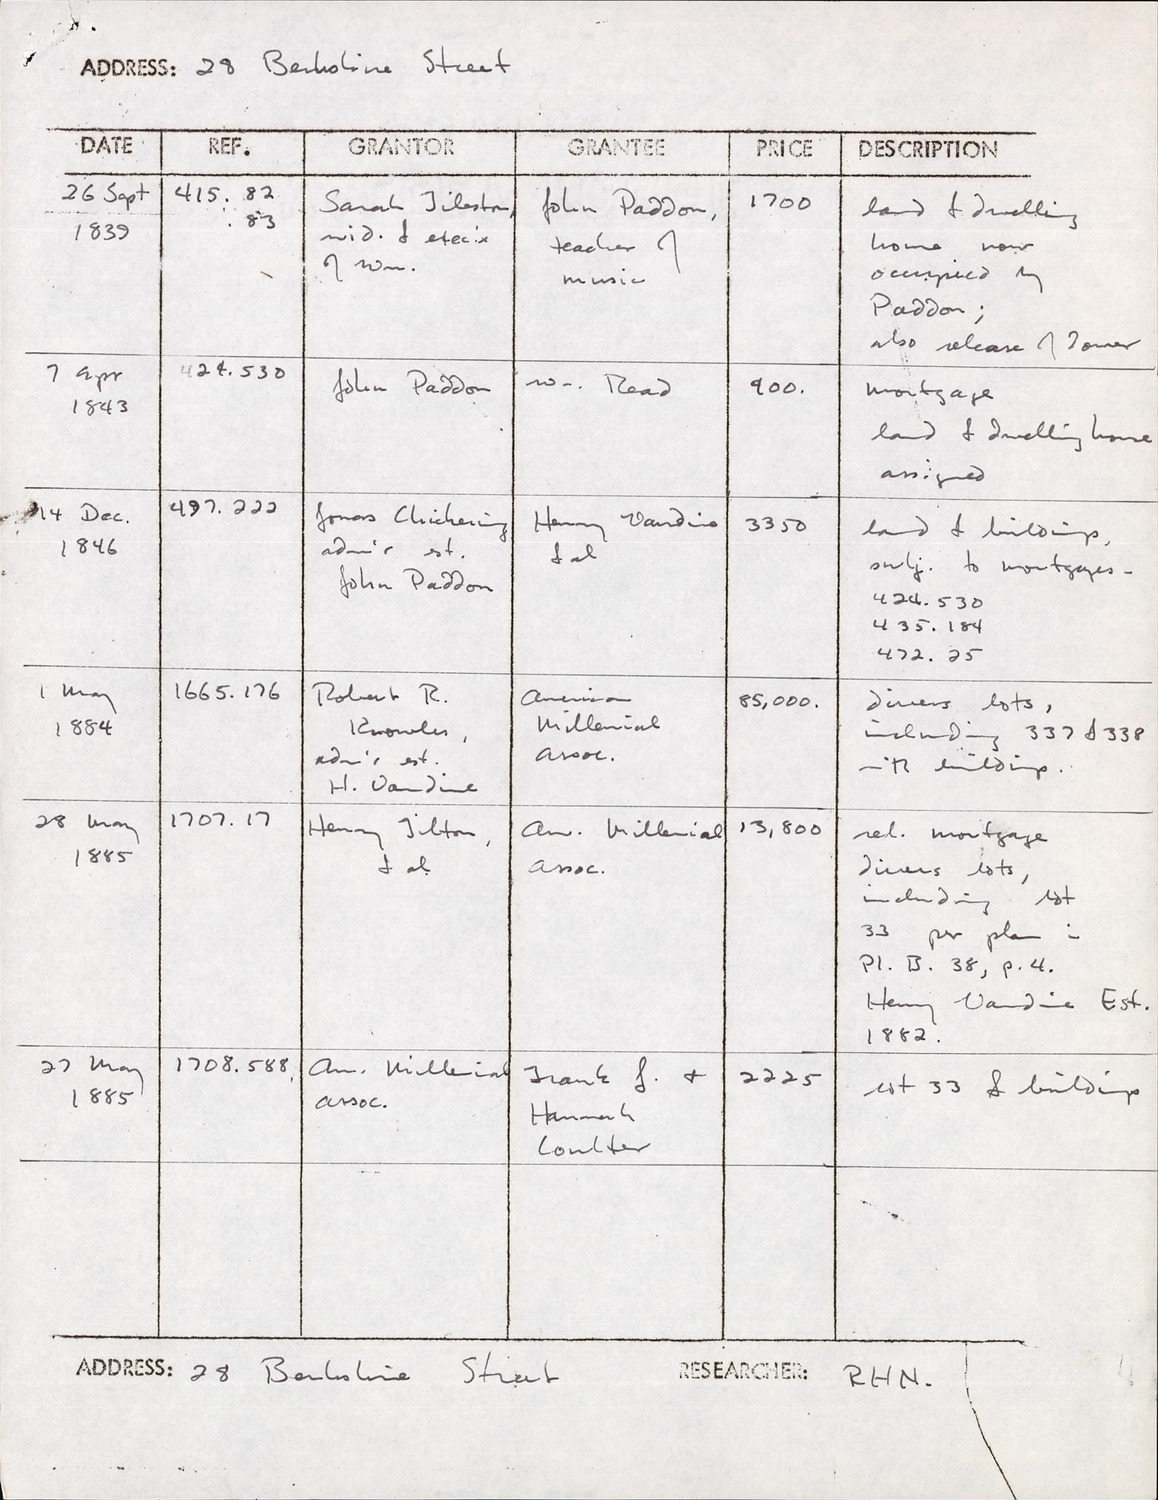 ADDRESS: 28 Berkshire Street
DATE REF. GRANTOR GRANTEE PRICE DESCRIPTION
26 Sept
1839
415. 82
: 83
Sarah Tileston,
wid. & exec'x
of Wm.
John Paddon,
teacher of
music
1700
land & dwelling
home now
occupied by
Paddon;
also release of dower
7 Apr
1843
424.530
John Paddon
Wm. Read
900.
mortgage
land & dwelling house
assigned
14 Dec.
1846
497.222
Jonas Chickering
adm'r est.
John Paddon
Henry Vandine
& al
3350
land & buildings,
subj. to mortgages-
424.530
435.184
472.25
1 May
1884
1665.176
Robert R.
Knowles,
adm'r est.
H. Vandine
American
Millenial
Assoc.
85,000.
divers lots,
including 337 & 338
with buildings.
28 May
1885
1707.17
Henry Tilton,
& al
Am. Millenial
Assoc.
13,800
rel. mortgage
divers lots,
including lot
33 per plan in
Pl. B. 38, p.4.
Henry Vandine Est.
1882.
27 May
1885
1708.588
Am. Millenial
Assoc.
Frank J. +
Hannah
Coulter
2225
lot 33 & buildings
ADDRESS: 28 Berkshire Street RESEARCHER: RHN.